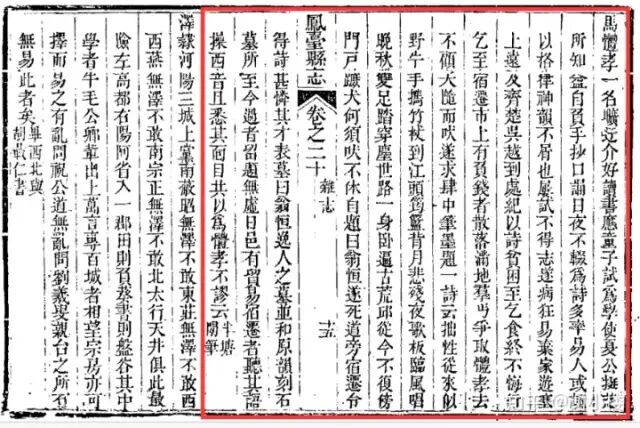 馬體孝一名曠近介好讀書應童子試為學使夏公擬
所知益自負手抄口誦日夜不輟為詩多率易人或
以格律神韻不屑也屢試不得志遂病狂易棄家遊
上遠及齊楚吳越到處紀以詩貧困至乞食終不悔
乞至宿遷市上有負錢者散落滿地羣丐爭取體孝去
不顧犬隨而吠遂求肆中筆墨題一詩云拙性從來似
野牛手攜竹杖到江頭籃昔月悲殘夜歌板臨風唱
晚秋雙足踏穿塵世路一身臥遍古荒邱從今不復傍
門戸蹶犬何須吠不休自題曰翁恒遂死道旁宿遷令
鳳臺縣志 卷之二十 雜志 十五
得詩甚憐其才表墓曰翁恒逸人之墓並和原韻刻石
墓所至今過者留題無虛日邑有留易宿遷者聽其
操西音且悉其面目共以為體孝不謬云牛塘
澤隸河陽三城上黨南敝昭無澤不敢東莊無澤不敢西
西燕無澤不敢南宗正無澤不敢北太行天井俱此最
險左高都右陽阿省入一郡田則負則盤谷其中
學者牛毛公卿輩出上萬言專百城者相望宗易亦可
擇而易之有亂問視公道無亂問劉羲叟親台之所有
無易此者矣畢西北與胡戢仁書